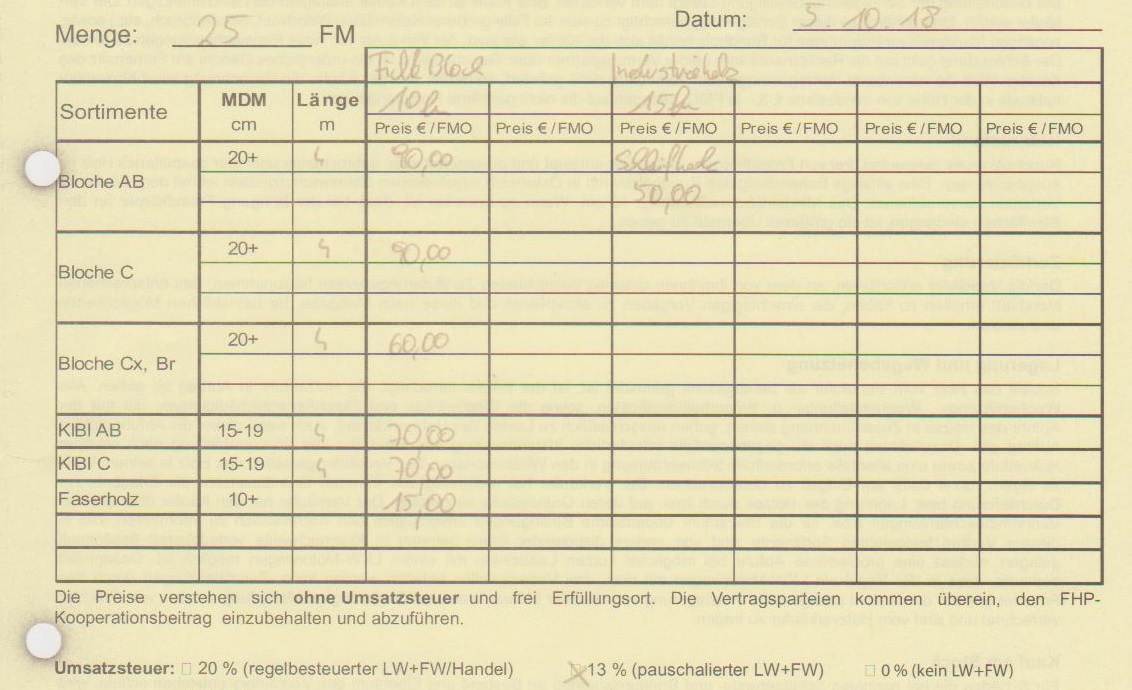 Datum: 5 10 18
Menge: 25 FM
Block Industrieholz
Sortimente MDM cm Länge m 10 fm 15 fm
Preis €/FMO Preis €/FMO Preis €/FMO Preis €/FMO Preis €/FMO Preis €/FMO
Bloche AB 20+ 4 90,00 Schleifholz
50,00
Bloche C 20+ 4 90,00
Bloche Cx, Br 20+ 4 60,00
KIBI AB 15-19 4 70,00
KIBI C 15-19 4 70,00
Faserholz 10+ 15,00
Die Preise verstehen sich ohne Umsatzsteuer und frei Erfüllungsort. Die Vertragsparteien kommen überein, den FHP-
Kooperationsbeitrag einzubehalten und abzuführen.
Umsatzsteuer: □ 20 % (regelbesteuerter LW+FW/Handel) ☒ 13 % (pauschalierter LW+FW) □ 0 % (kein LW+FW)